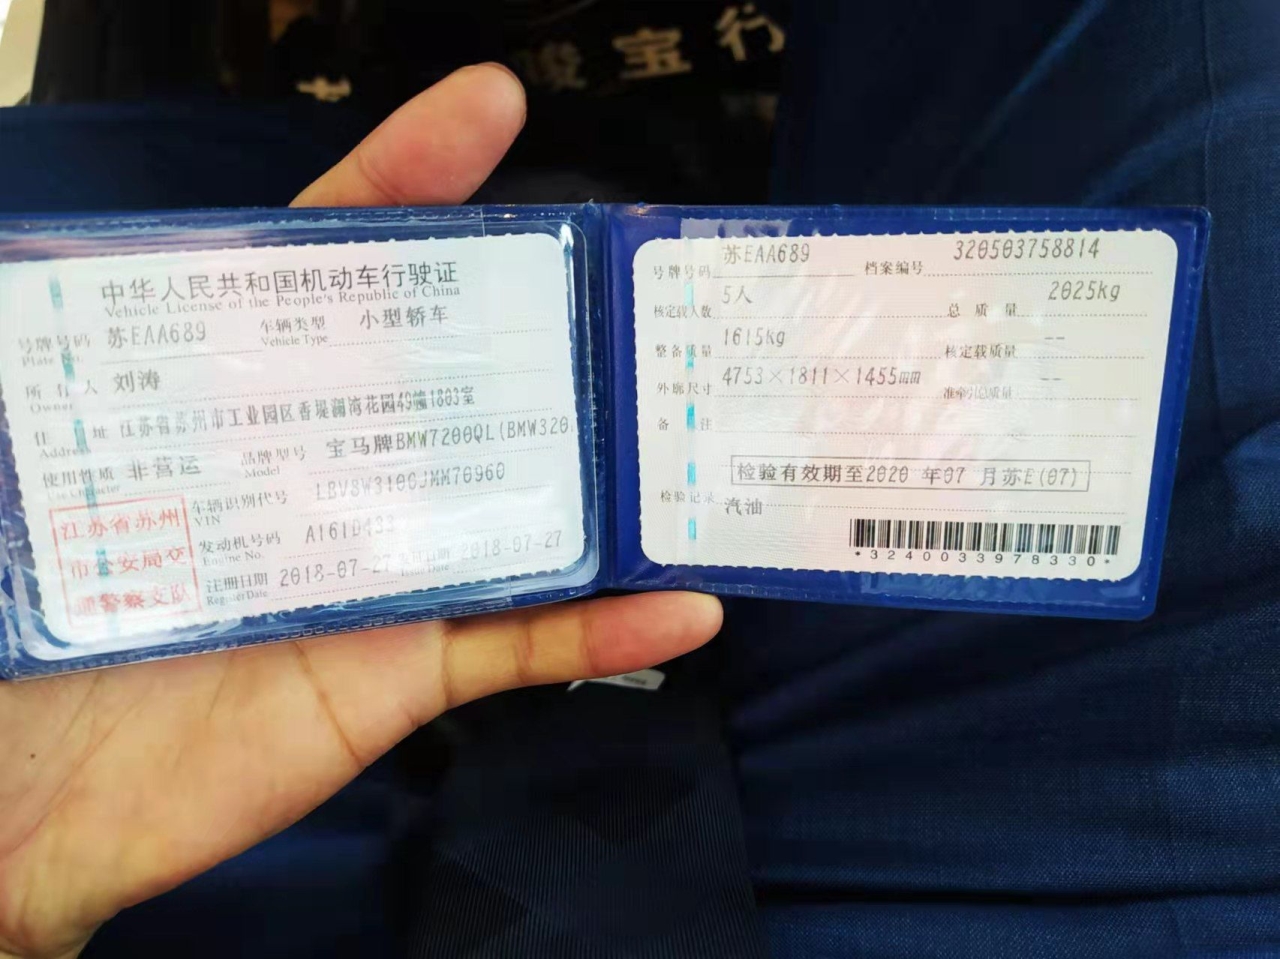 骏宝行
中华人民共和国机动车行驶证
Vehicle License of the People's Republic of China
号牌号码 苏EAA689 车辆类型 小型轿车
Plate No. Vehicle Type
所有人 刘涛
Owner
住址 江苏省苏州市工业园区香堤澜湾花园49幢1803室
Address
使用性质 非营运 品牌型号 宝马牌BMW7200QL(BMW320
Use Character Model
车辆识别代号 LBV8W3100JMM70960
VIN
发动机号码 A161D433
Engine No.
注册日期 2018-07-27 发证日期 2018-07-27
Register Date Issue Date
江苏省苏州
市公安局交
通警察支队
号牌号码 苏EAA689 档案编号 320503758814
核定载人数 5人 总质量 2025kg
整备质量 1615kg 核定载质量 --
外廓尺寸 4753×1811×1455mm 准牵引总质量 --
备注
检验有效期至2020 年07 月苏E(07)
检验记录 汽油
*3240033978330*